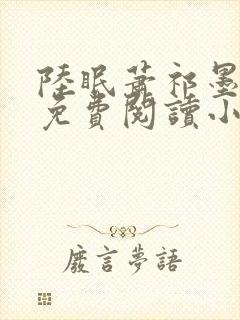 陸眠蕭祁墨
免費閱讀小
廢言夢語